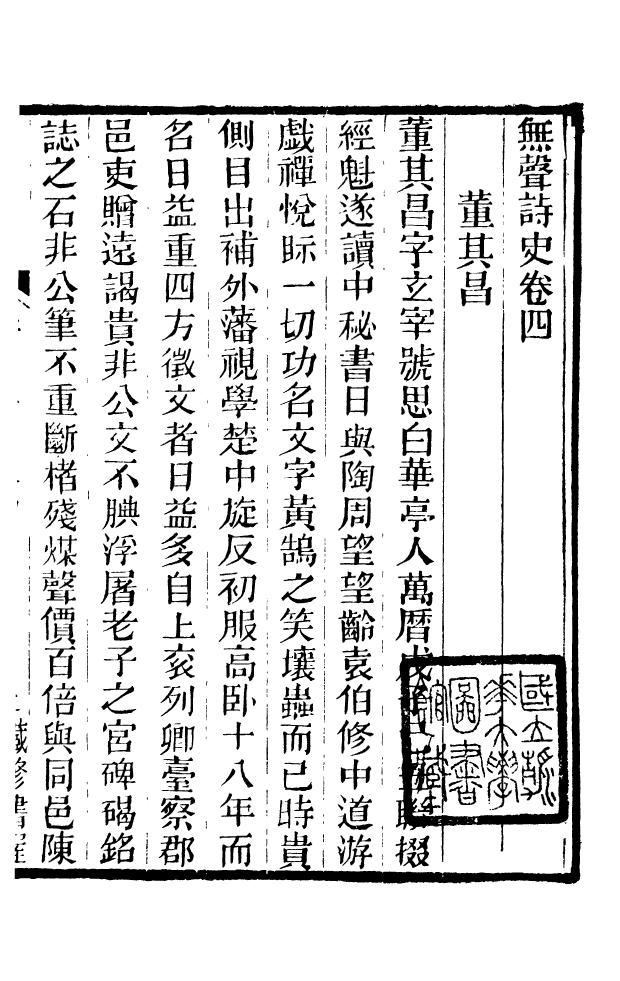 無聲詩史卷四
董其昌
董其昌字玄宰號思白華亭人萬暦戊子聯掇
經魁遂讀中秘書日與陶周望望齡袁伯修中道游
戯禪悅眎一切功名文字黃鵠之笑壤蟲而已時貴
側目出補外藩視學楚中旋反初服高卧十八年而
名日益重四方徵文者日益多自上衮列卿臺察郡
邑吏贈遠謁貴非公文不腆浮屠老子之宮碑碣銘
誌之石非公筆不重斷楮殘煤聲價百倍與同邑陳
藏修書屋
國立清
華大學
圖書
館藏